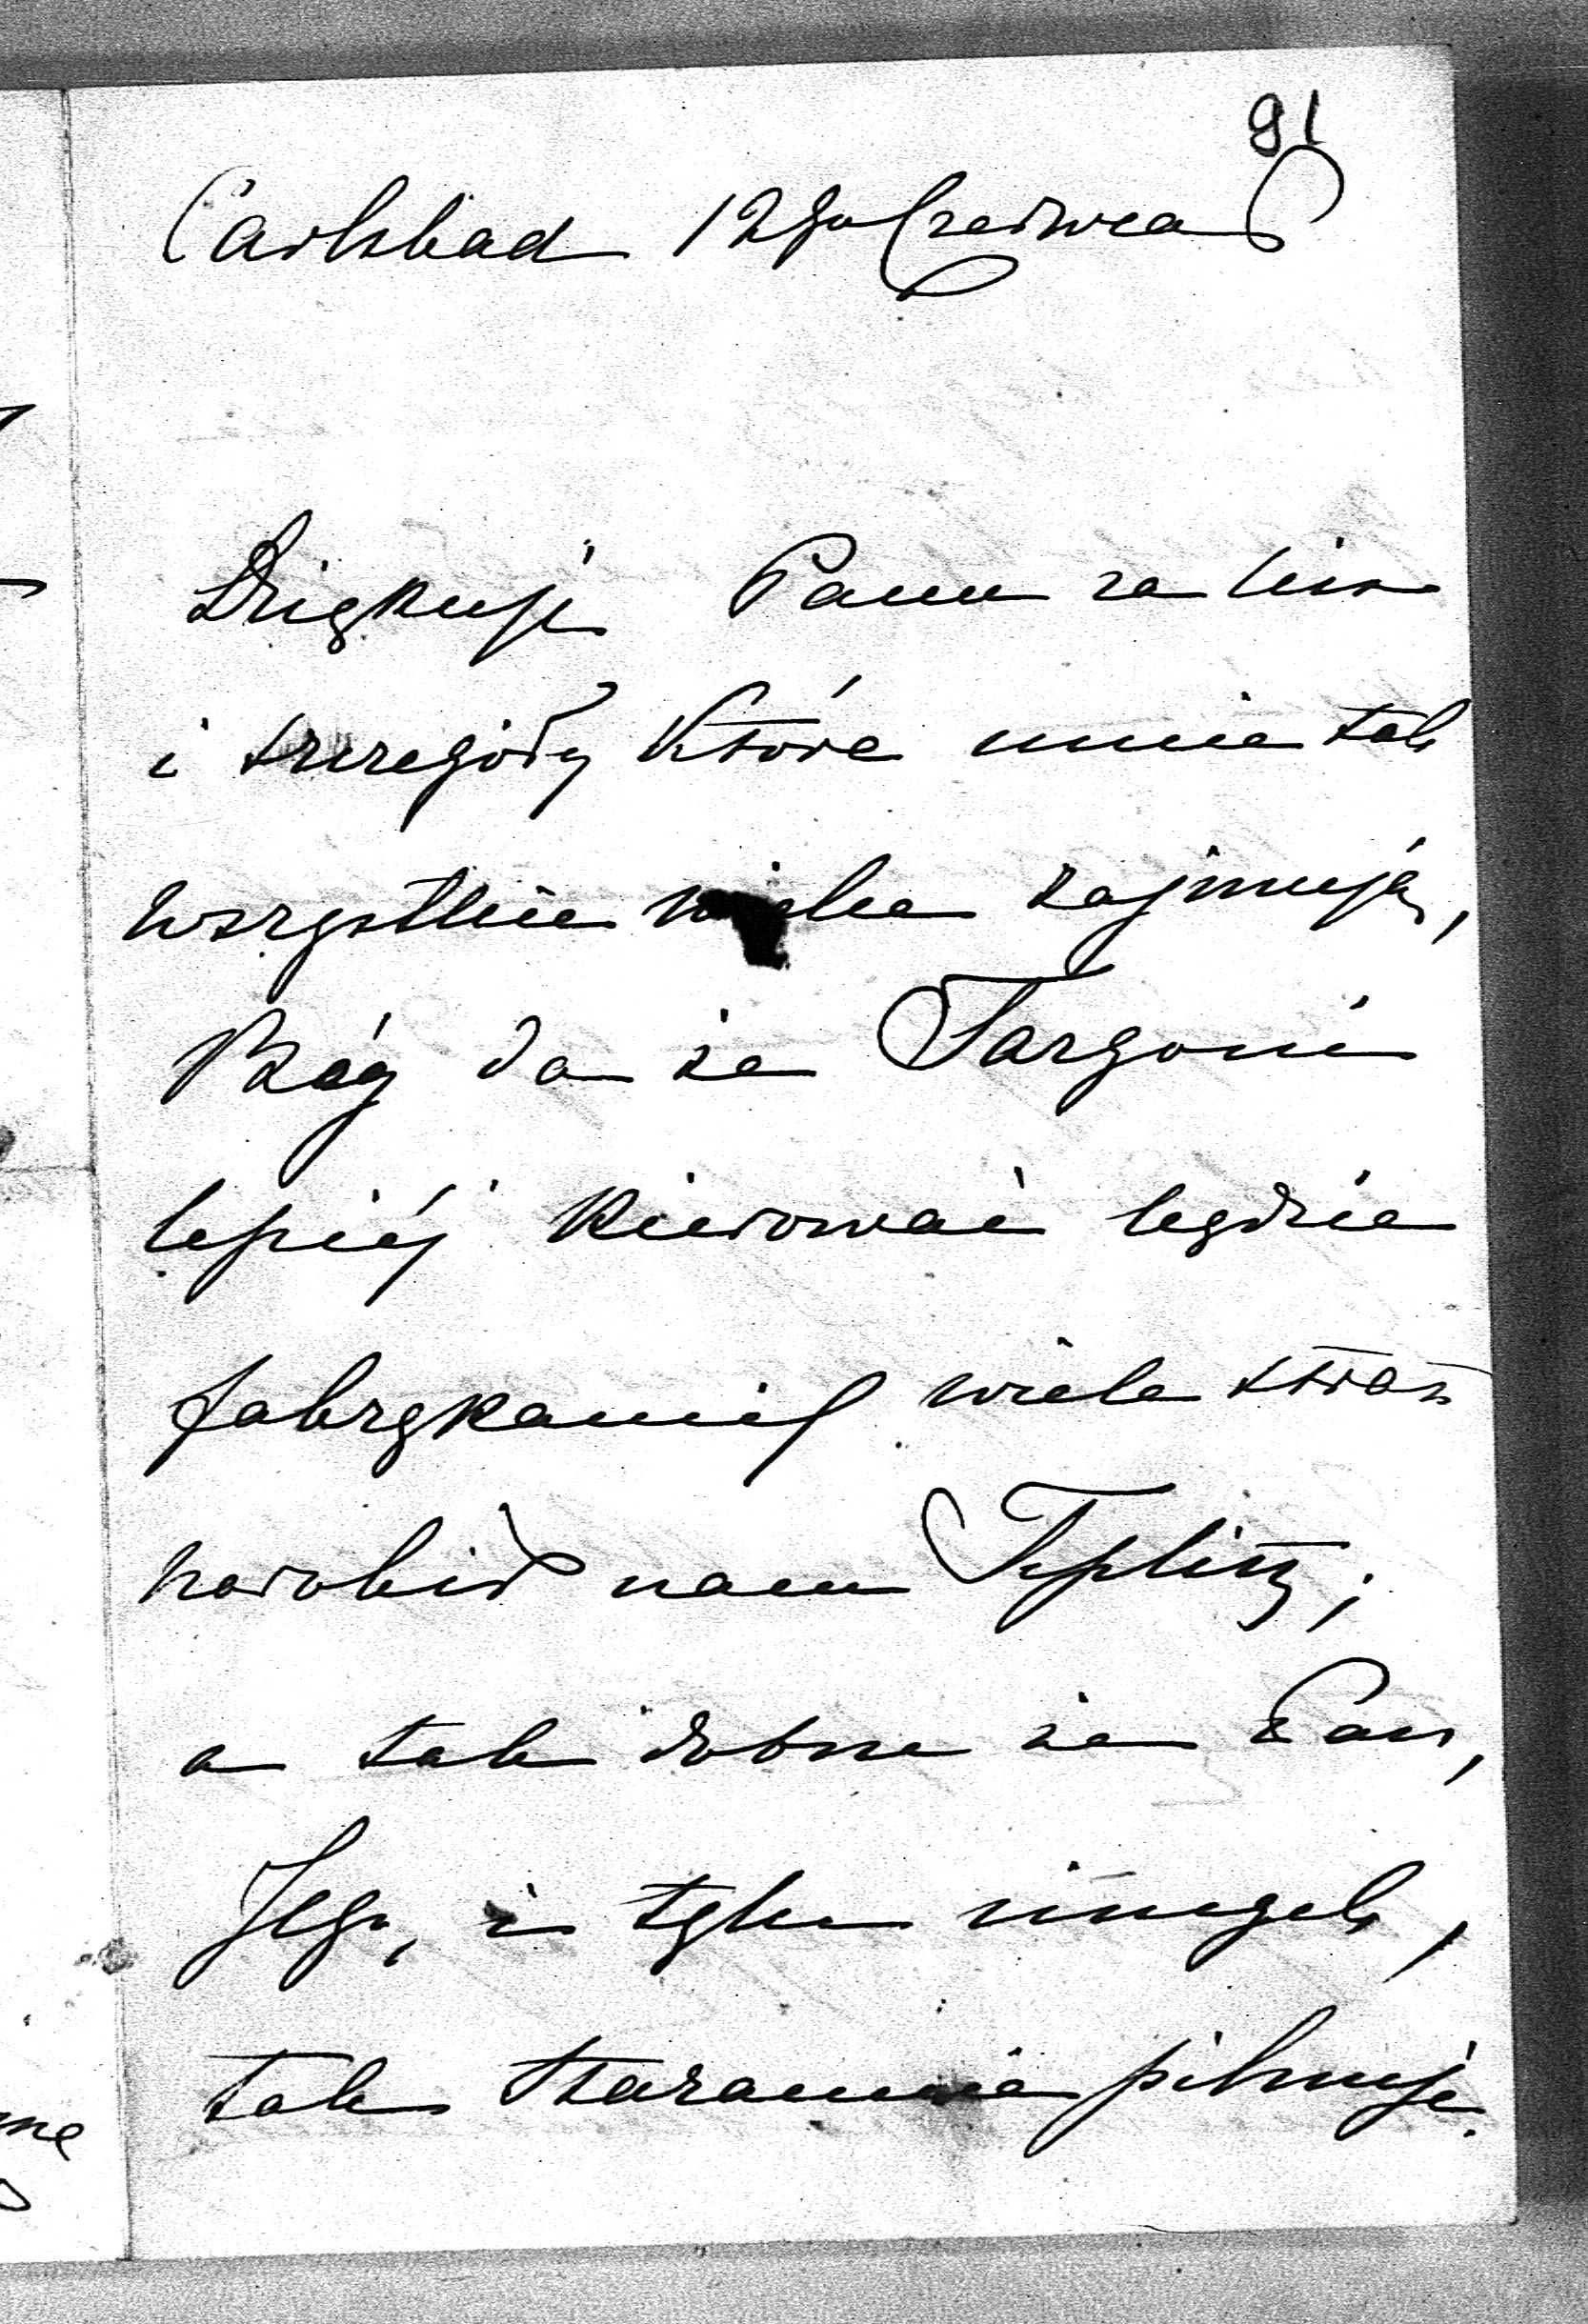 91
Carlsbad 12go Czerwca
Dziękuję Panu za list
i szczegóły które mnie tak
wszystkie wielce zajmują,
Bóg da że Targoni
lepiéj kierować będzie
fabrykami wiele strat
narobił nam Teplitz;
a tak dobrze że Pan,
Jego, i tylu innych,
tak starannie pilnuje.